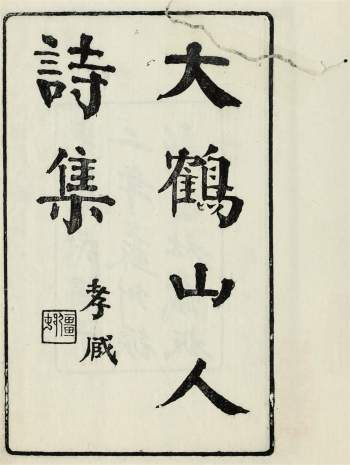 大鶴山人
詩集
孝臧